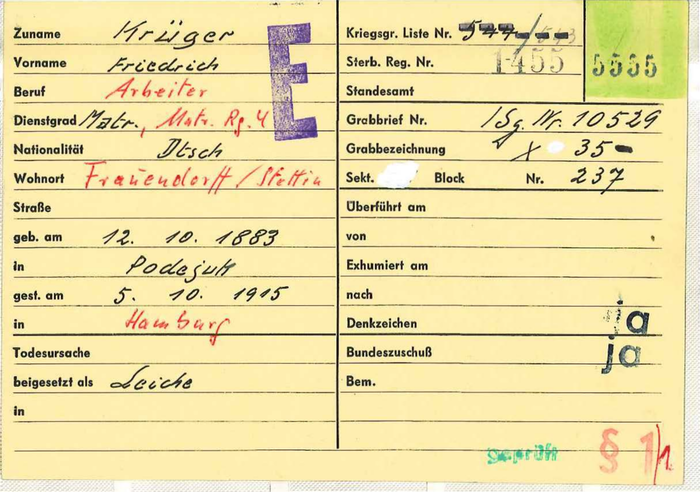 Zuname Krüger
Vorname Friedrich
Beruf Arbeiter
Dienstgrad Matr., Matr. Rg. 4
Nationalität Dtsch
Wohnort Frauendorff / Stettin
Straße
geb. am 12. 10. 1883
in Podejuk
gest. am 5. 10. 1915
in Hamburg
Todesursache
beigesetzt als Leiche
in
E
Kriegsgr. Liste Nr. 544
Sterb. Reg. Nr. 1455
5555
Standesamt
Grabbrief Nr. 10529
Grabbezeichnung X 35
Sekt. Block Nr. 237
Überführt am
von
Exhumiert am
nach
Denkzeichen ja
Bundeszuschuß ja
Bem.
geprüft § 1/1